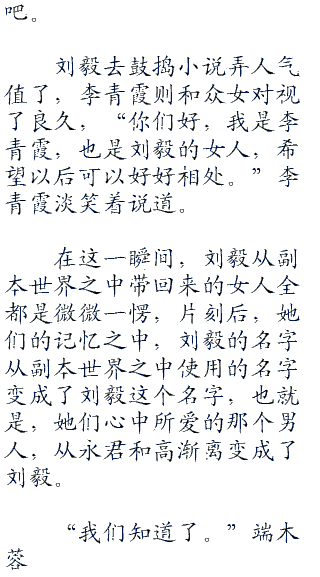 吧。
刘毅去鼓捣小说弄人气
值了，李青霞则和众女对视
了良久，“你们好，我是李
青霞，也是刘毅的女人，希
望以后可以好好相处。”李
青霞淡笑着说道。
在这一瞬间，刘毅从副
本世界之中带回来的女人全
都是微微一愣，片刻后，她
们的记忆之中，刘毅的名字
从副本世界之中使用的名字
变成了刘毅这个名字，也就
是，她们心中所爱的那个男
人，从永君和高渐离变成了
刘毅。
“我们知道了。”端木
蓉